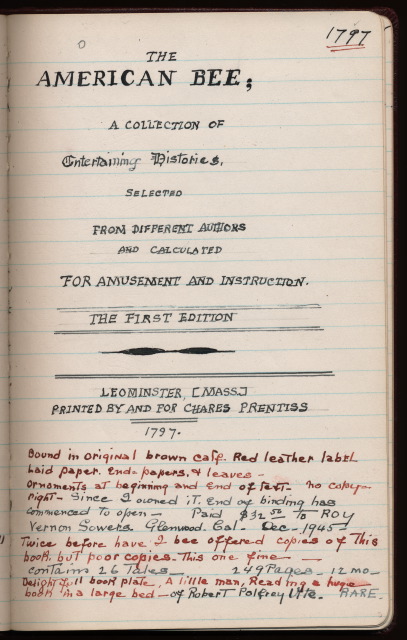 1797
THE
AMERICAN BEE;
A COLLECTION OF
Entertaining Histories,
SELECTED
FROM DIFFERENT AUTHORS
AND CALCULATED
FOR AMUSEMENT AND INSTRUCTION.
THE FIRST EDITION
LEOMINSTER, [MASS.]
PRINTED BY AND FOR CHARES PRENTISS
1797.
Bound in original brown calf. Red leather label
Laid paper. End-papers, & leaves -
ornaments at beginning and End of text. no copy-
right - Since I owned it. End of binding has
commenced to open - Paid $32.50 to Roy
Vernon Sowers. Glenwood. Cal - Dec - 1945 -
Twice before have I bee offered copies of This
book. but poor copies - This one fine -
contains 26 Tales - 249 Pages - 12 mo -
Delightfull book plate, A little man, Reading a huge
book in a large bed - of Robert Palfrey Utte. RARE.